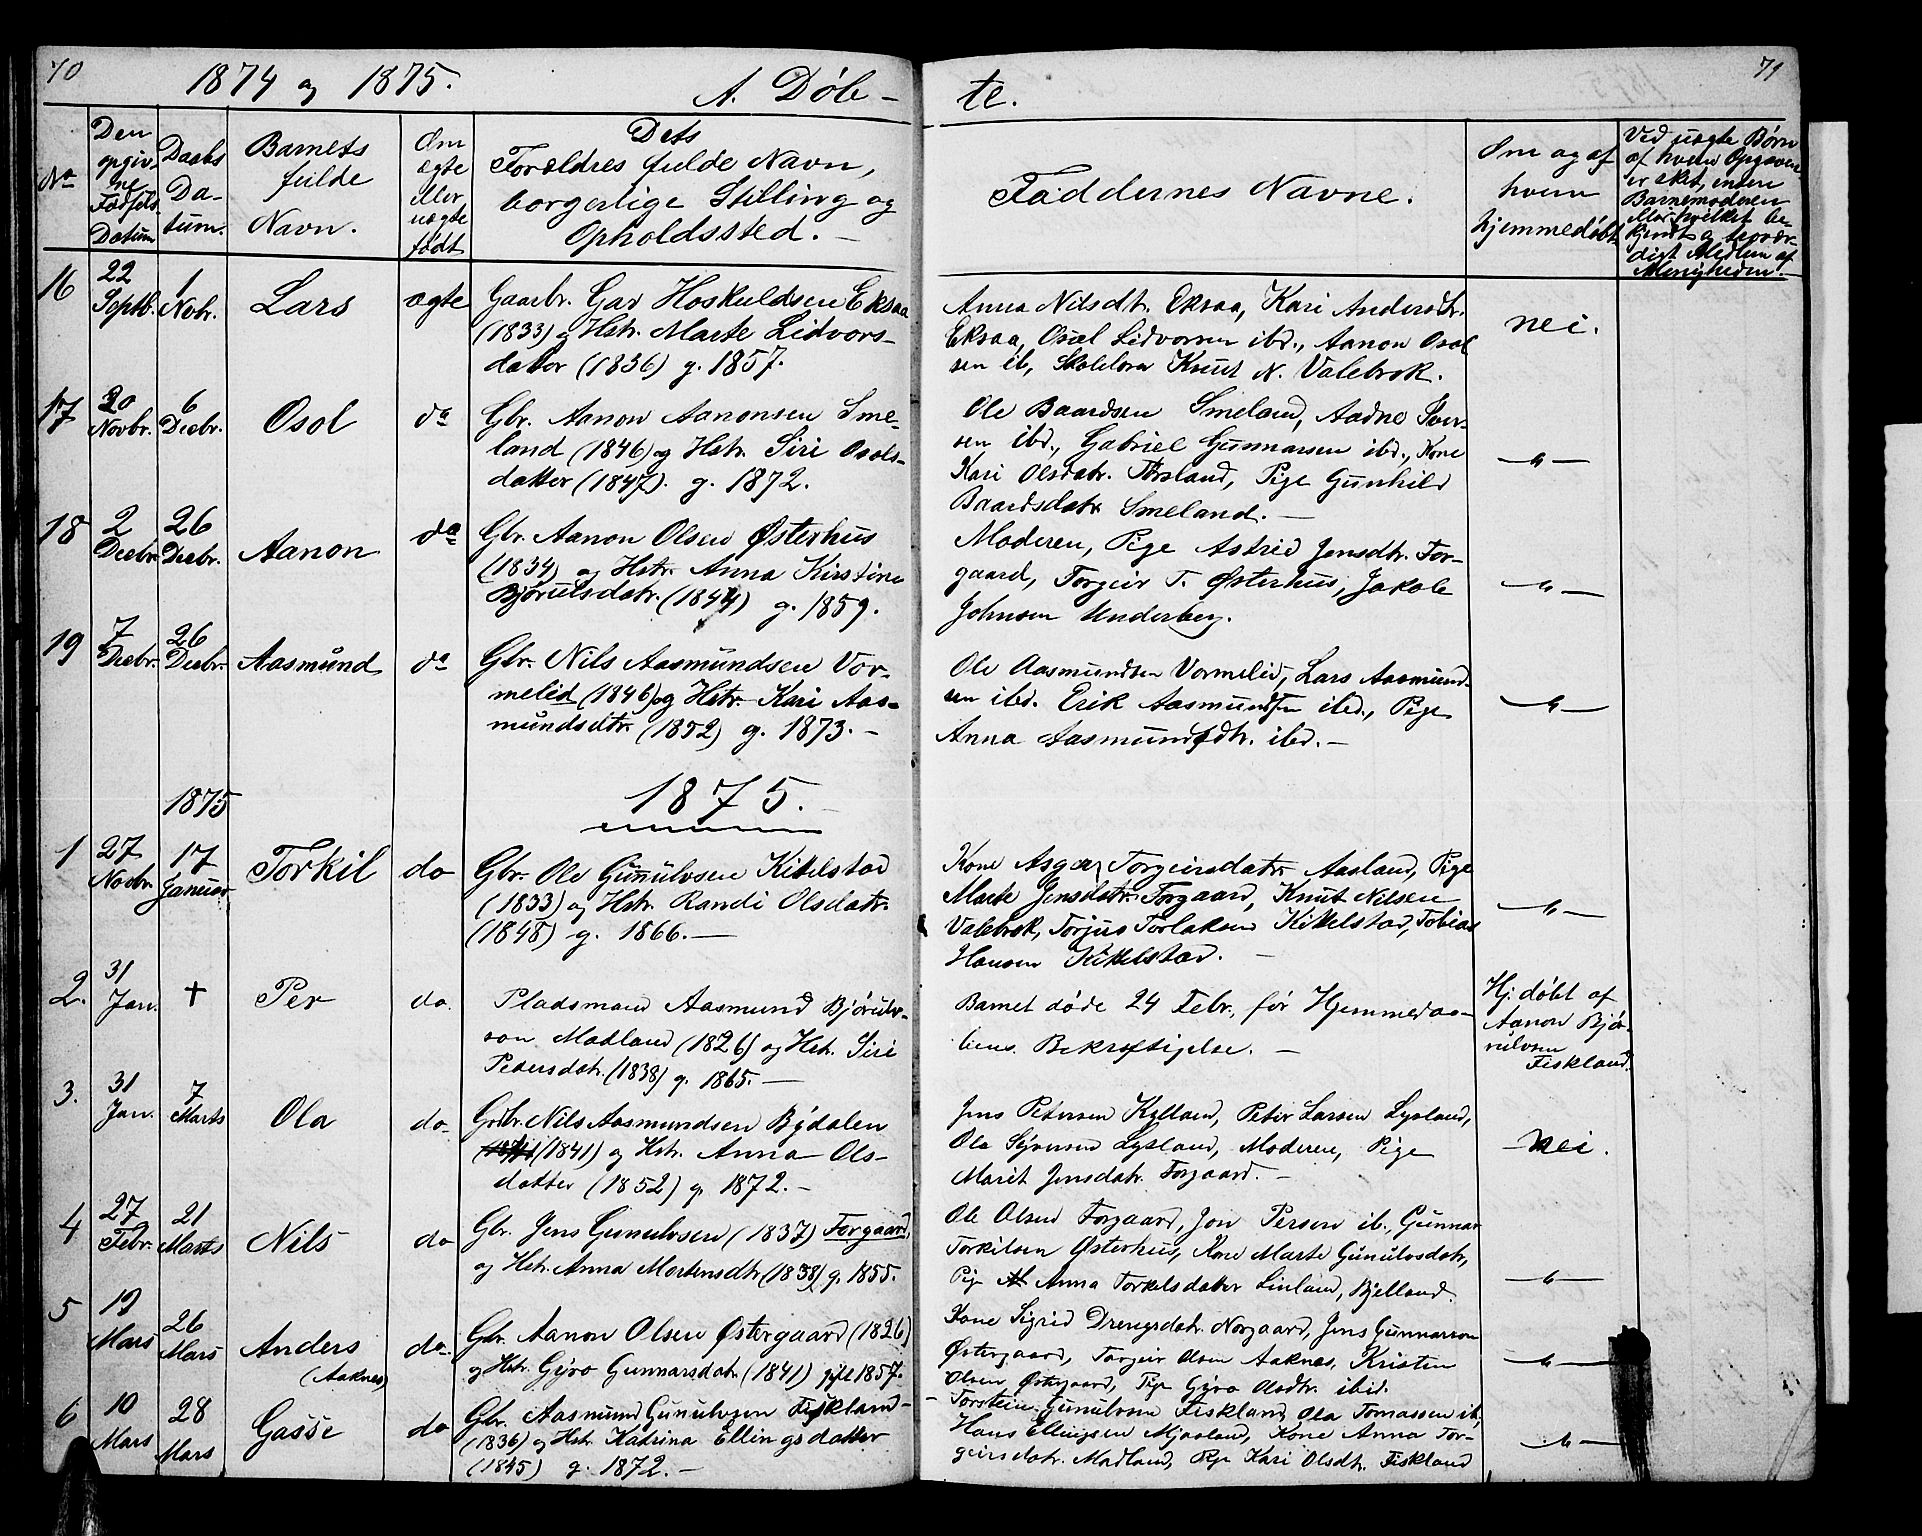 70
1874 og 1875.
A. Døb-
te.
71
No
Den opgivne Fødsels Datum
Daabs Datum.
Barnets fulde Navn.
Om ægte eller uægte født
Dets Forældres fulde Navn, borgerlige Stilling og Opholdssted.
Faddernes Navne.
Om og af hvem hjemmedøbt
Ved uægte Børn af hvem Opgaven er sket, enten Barnemoderen eller hvilket bekjendt og troværdigt Medlem af Menigheden.
16
22 Septb.
1 Nobr.
Lars
ægte
Gaarbr. Gar Hoskuldsen Eksaa
(1833) og Hstr. Marte Lidvors-
datter (1836) g. 1857.
Anna Nilsdtr. Eksaa, Kari Andersdtr.
Eksaa, Osol Lidvorsen ibd., Aanon Osol
sen ib, Skolelærer Knut N. Valebrok.
nei.
17
30 Novbr.
6 Decbr.
Osol
do
Gbr. Aanon Aanonsen Sme-
land (1846) og Hstr. Siri Osols-
datter (1847). g. 1872.
Ole Baardsen Smeland, Aadne Iver-
sen ibd., Gabriel Gunnarsen ibd., Kone
Kari Olsdatr.Førsland, Pige Gunhild
Baardsdatr. Smeland. —
—"—
18
2 Decbr.
26 Decbr.
Aanon
do
Gbr. Aanon Olsen Østerhus
(1834) og Hstr. Anna Kirstine
Bjørulsdatr. (1844) g. 1859.
Moderen, Pige Astrid Jensdtr. For-
gaard, Torgeir T. Østerhus, Jakob
Johnsen Underberg.
—"—
19
7 Decbr.
26 Decbr.
Aasmund
do
Gbr. Nils Aasmundsen Vor-
melid (1846) og Hstr. Kari Aas-
mundsdtr. (1852) g. 1873. —
Ole Aasmundsen Vormelid, Lars Aasmund-
sen ibd. Erik Aasmundsen ibd., Pige
Anna Aasmundsdtr. ibd. —
—"—
1875
1875.
1
27 Novbr.
17 Januar
Torkil
do
Gbr. Ole Gunulvsen Kittelstad
(1833) og Hstr. Randi Olsdatr.
(1848) g. 1866. —
Kone Asgar Torgeirsdatr. Aasland, Pige
Marte Jensdatr. Forgaard, Knut Nilsen
Valebrok, Torjus Torlaksen Kittelstad, Tobias
Hansen Kittelstad. —
—"—
2.
31 Jan.
†
Per
do.
Pladsmand Aasmund Bjørulv-
son Madland (1826) og Hstr. Siri
Pedersdatr. (1838) g. 1865. —
Barnet døde 24 Febr., før Hjemmedaa-
bens Bekræftigelse. —
Hj. døbt af
Aanon Bjø-
rulvsen
Fiskland.
3.
31 Jan.
7 Marts
Ola
do
Grdbr. Nils Aasmundsen Bydalen
(1841) og Hstr. Anna Ols-
datter (1852) g. 1872. —
Jens Petersen Kylland, Peter Larsen Lysland,
Ole Syversen Lysland, Moderen, Pige
Marit Jensdatr. Forgaard. —
nei.
4
27 Febr.
21 Marts
Nils
do
Gbr. Jens Gunulvsen (1837) Forgaard,
og Hstr. Anna Mortensdtr. (1838) g. 1855.
Ole Olsen Forgaard, Jon Persen ib., Gunnar
Torkilsen Østerhus, Kone Marte Gunulvsdatr,
Pige Anna Torkelsdatter Linland, Bjelland.
—"—
5
19 Mars
26 Mars
Anders
(Aaknes)
do.
Gbr. Aanon Olsen Østergaard (1826)
og Hstr. Gyro Gunnarsdatr. (1841) gift 1857.
Kone Sigrid Drengsdatr. Norgaard, Jens Gunnarson
Østergaard, Torgeir Olsen Aaknes, Kristen
Olsen Østergaard, Pige Gyro Olsdtr. ibid.
—"—
6
10 Mars
28 Mars
Gasse
do
Gbr. Aasmund Gunulvsen Fiskland
(1836) og Hstr. Katrina Ellingsdatter
(1845) g. 1872. —
Torstein Gunulvsen Fiskland, Ola Tomassen ib,
Hans Ellingsen Mjaaland, Kone Anna Tor-
geirsdatr. Madland, Pige Kari Olsdtr. Fiskland
—"—